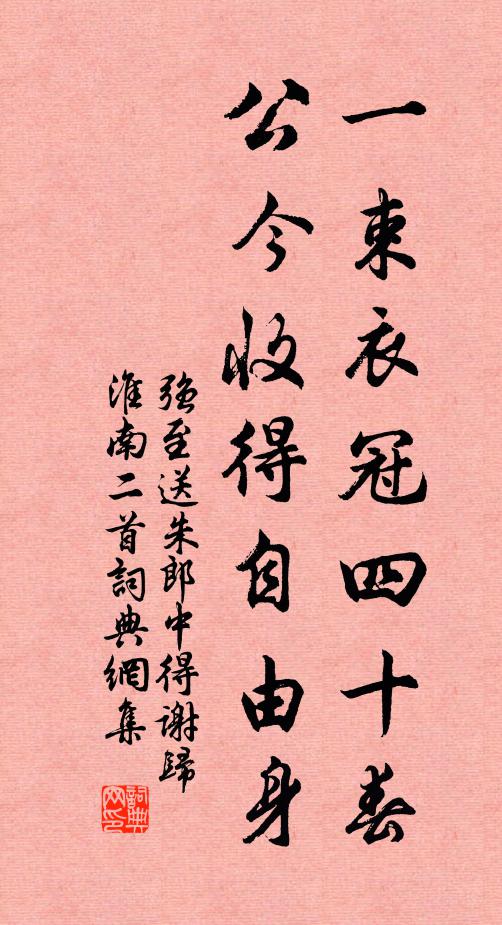 一束衣冠四十春
公今收得自由身
強至送朱郎中得謝歸
淮南二首詞典網集
詞典網印